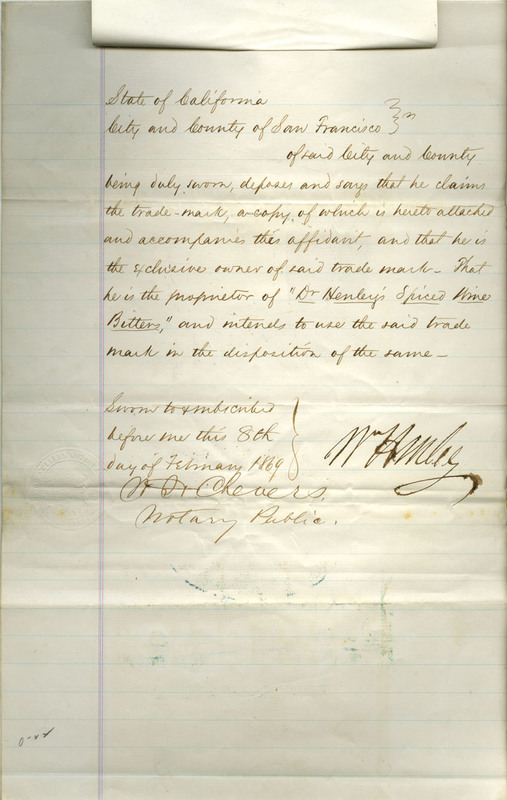 State of California
City and County of San Francisco } ss
of said City and County
being duly sworn, deposes and says that he claims
the trade-mark, a copy of which is hereto attached
and accompanies this affidavit, and that he is
the exclusive owner of said trade mark - That
he is the proprietor of "Dr Henley's Spiced Wine
Bitters," and intends to use the said trade
mark in the disposition of the same -
Sworn to & subscribed
before me this 8th
day of February 1869
Wm Henley
Chevers
Notary Public.